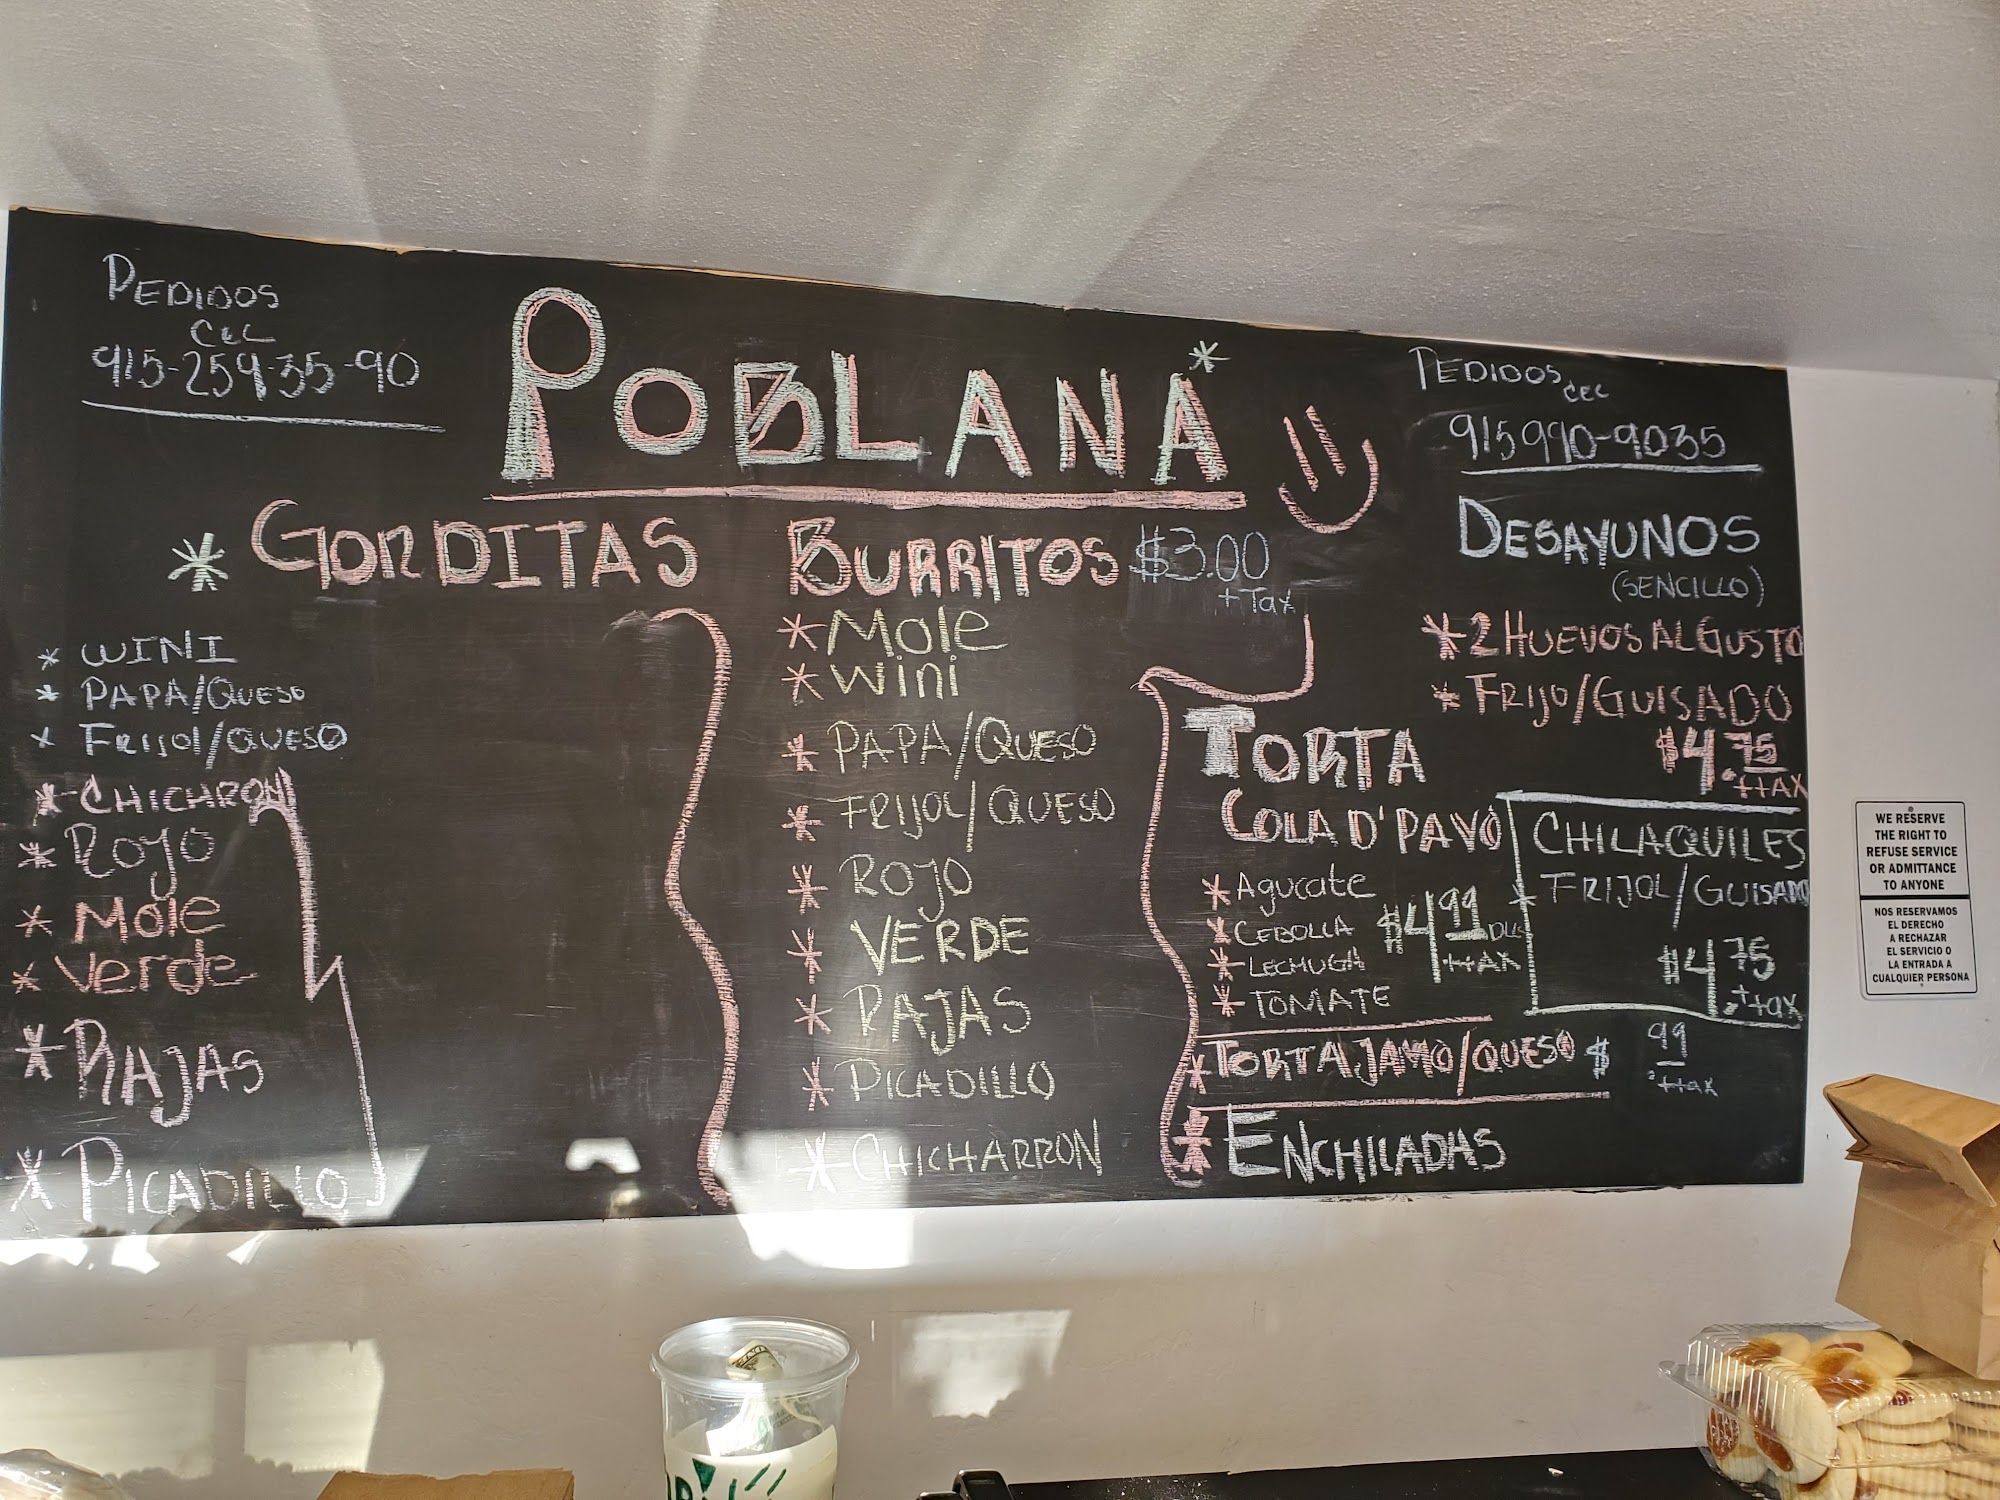 PEDIDOS
CEL
915-259-35-90
POBLANA*
PEDIDOS CEL
915990-9035
* GORDITAS
* WINI
* PAPA/QUESO
* FRIJOl/QUESO
* CHICHRON
* ROJO
* Mole
* Verde
* RAJAS
* PICADILLO
BURRITOS $3.00
+Tax
* Mole
* Wini
* PAPA/QUESO
* FRIJOL/QUESO
* ROJO
* VERDE
* RAJAS
* PICADILLO
* CHICHARRON
DESAYUNOS
(SENCILLO)
* 2 HUEVOS AL GUSTO
* FRIJO/GUISADO
$4.75
++AX
TORTA
COLA D'PAVO
* Agucate
* CEBOLLA
* LECHUGA
* TOMATE
$4 99 DLLS
++AX
CHILAQUILES
* FRIJOL/GUISADO
$4.75
++ax
* TORTA JAMO/QUESO $ .99
++ax
* ENCHILADAS
WE RESERVE
THE RIGHT TO
REFUSE SERVICE
OR ADMITTANCE
TO ANYONE
NOS RESERVAMOS
EL DERECHO
A RECHAZAR
EL SERVICIO O
LA ENTRADA A
CUALQUIER PERSONA